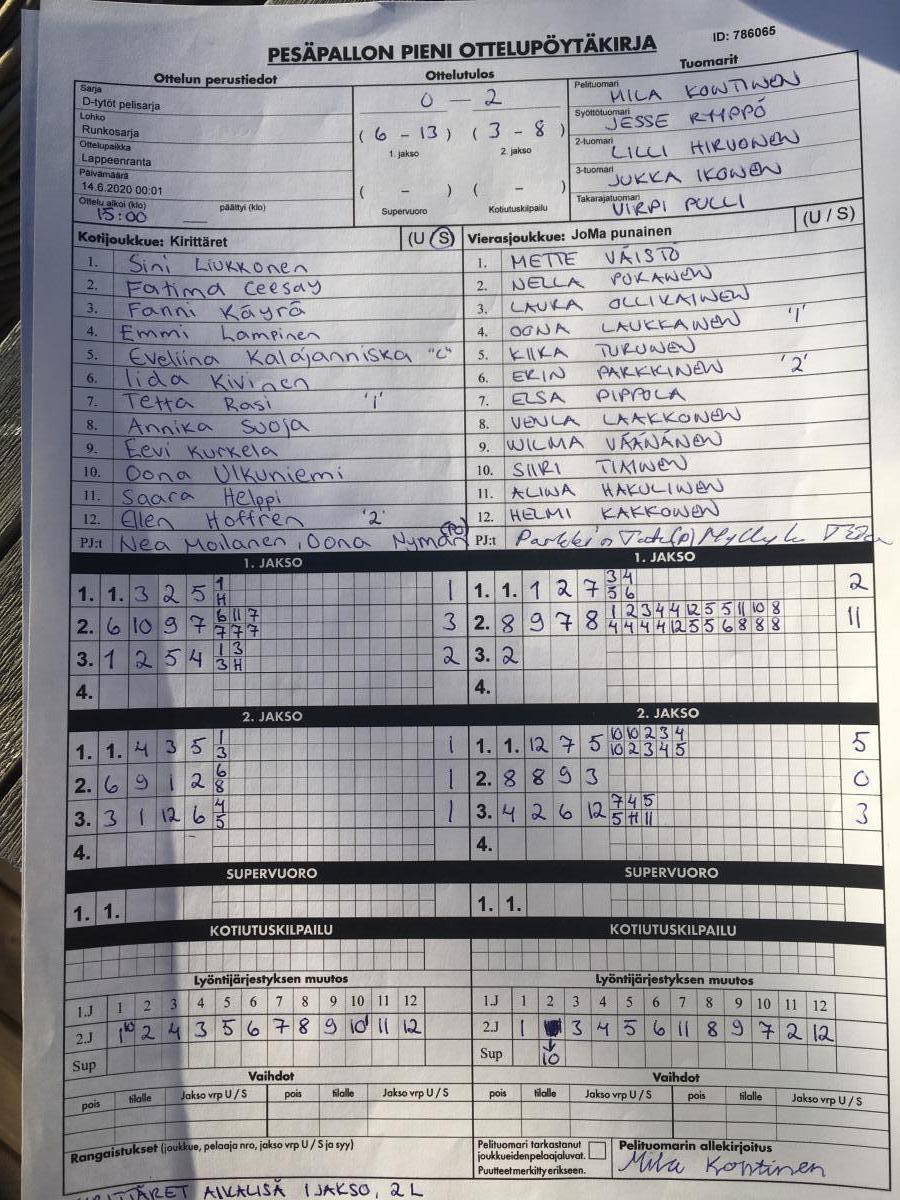 PESÄPALLON PIENI OTTELUPÖYTÄKIRJA
ID: 786065
Ottelun perustiedot
Sarja
D-tytöt pelisarja
Lohko
Runkosarja
Ottelupaikka
Lappeenranta
Päivämäärä
14.6.2020 00:01
Ottelu alkoi (klo) päättyi (klo)
15:00
Ottelutulos
0 — 2
( 6 - 13 ) ( 3 - 8 )
1. jakso 2. jakso
( - ) ( - )
Supervuoro Kotiutuskilpailu
Tuomarit
Pelituomari
MILA KONTINEN
Syöttötuomari
JESSE RYPPÖ
2-tuomari
LILLI HIRVONEN
3-tuomari
JUKKA IKONEN
Takarajatuomari
VIRPI PULLI
Kotijoukkue: Kirittäret (U / S)
1. Sini Liukkonen
2. Fatima Ceesay
3. Fanni Käyrä
4. Emmi Lampinen
5. Eveliina Kalajanniska "C"
6. Iida Kivinen
7. Tetta Rasi '1'
8. Annika Suoja
9. Eevi Kurkela
10. Oona Ulkuniemi
11. Saara Helppi
12. Ellen Hoffren '2'
PJ:t Nea Moilanen, Oona Nyman (PJ)
Vierasjoukkue: JoMa punainen (U / S)
1. METTE VÄISTÖ
2. NELLA PUKANEN
3. LAURA OLLIKAINEN
4. OONA LAUKKANEN '1'
5. KIIKA TURUNEN
6. ERIN PARKKINEN '2'
7. ELSA PIPPOLA
8. VENLA LAAKKONEN
9. WILMA VÄÄNÄNEN
10. SIIRI TIMINEN
11. ALINA HAKULINEN
12. HELMI KAKKONEN
PJ:t
1. JAKSO
1. 1. 3 2 5 1 1
H
2. 6 10 9 7 6 11 7 3
7 7 7
3. 1 2 5 4 1 3 2
3 H
4.
1. JAKSO
1. 1. 1 2 7 3 4 2
5 6
2. 8 9 7 8 1 2 3 4 4 12 5 5 11 10 8 11
4 4 4 4 12 5 5 6 8 8 8
3. 2
4.
2. JAKSO
1. 1. 4 3 5 1 1
3
2. 6 9 1 2 6 1
8
3. 3 1 12 6 4 1
5
4.
2. JAKSO
1. 1. 12 7 5 10 10 2 3 4 5
10 2 3 4 5
2. 8 8 9 3 0
3. 4 2 6 12 7 4 5 3
5 H 11
4.
SUPERVUORO
1. 1.
SUPERVUORO
1. 1.
KOTIUTUSKILPAILU
KOTIUTUSKILPAILU
Lyöntijärjestyksen muutos
1.J 1 2 3 4 5 6 7 8 9 10 11 12
2.J 1 10 2 4 3 5 6 7 8 9 10 1 11 12
Sup
Lyöntijärjestyksen muutos
1.J 1 2 3 4 5 6 7 8 9 10 11 12
2.J 1 3 4 5 6 11 8 9 7 2 12
Sup ↓ 10
Vaihdot
pois tilalle Jakso vrp U / S pois tilalle Jakso vrp U / S
Vaihdot
pois tilalle Jakso vrp U / S pois tilalle Jakso vrp U / S
Rangaistukset (joukkue, pelaaja nro, jakso vrp U / S ja syy)
Pelituomari tarkastanut
joukkueidenpelaajaluvat.
Puutteet merkitty erikseen.
Pelituomarin allekirjoitus
Mila Kontinen
KIRITTÄRET AIKALISÄ 1 JAKSO, 2 L